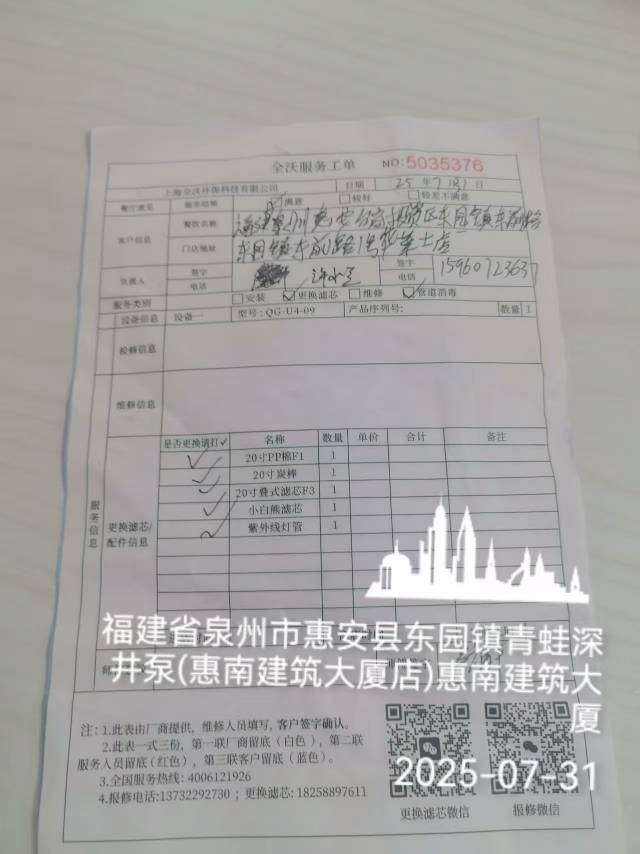 全沃服务工单 NO:5035376
上海全沃环保科技有限公司 日期 25 年 7 月 31 日
餐厅意见 服务结果 满意 较好 较差不满意
客户信息 餐饮名称
门店地址 东园镇东
负责人 签字 签字
电话 电话 15960723637
服务类别 安装 更换滤芯 维修 管道消毒
设备信息 设备一 型号: QG-U4-09 产品序列号: 数量 1
检修信息
维修信息
服务信息 更换滤芯/配件信息
是否更换请打✓ 名称 数量 单价 合计 备注
✓ 20寸PP棉F1 1
✓ 20寸炭棒 1
✓ 20寸叠式滤芯F3 1
✓ 小白熊滤芯 1
✓ 紫外线灯管 1
福建省泉州市惠安县东园镇青蛙深
井泵(惠南建筑大厦店)惠南建筑大
厦
注: 1.此表由厂商提供, 维修人员填写, 客户签字确认。
2.此表一式三份, 第一联厂商留底 (白色), 第二联
服务人员留底(红色), 第三联客户留底 (蓝色)。
3.全国服务热线: 4006121926
4.报修电话:13732292730 ; 更换滤芯: 18258897611
2025-07-31
更换滤芯微信 报修微信